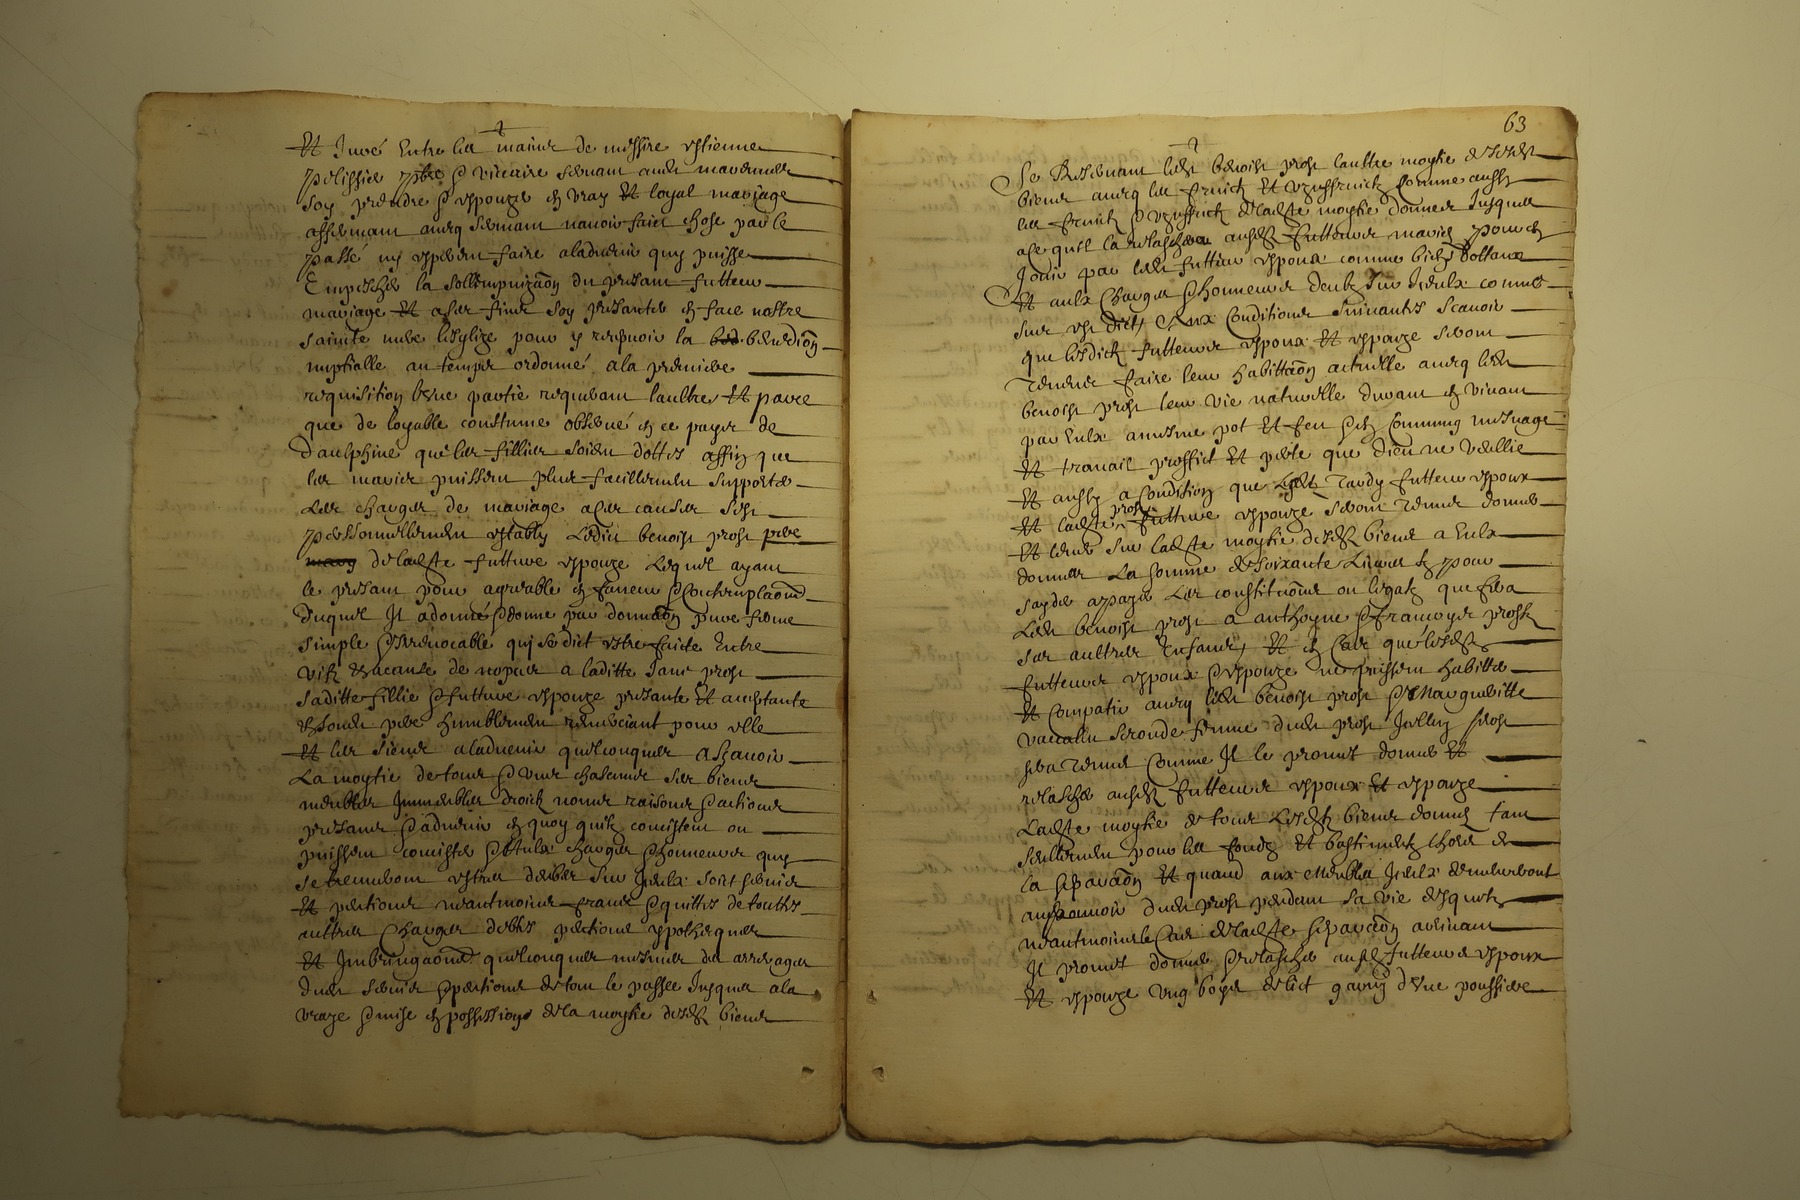 Et Juré Entre les mains de messire estienne
pelissier pbre & viccaire seruant audit
soy prendre & espouzer en vray Et loyal mariage
affermant auecq serment nauoir faict chose par le
passé ny esperer faire aladuenir quy puisse
Empescher la sollempnizaõn du presant futteur
mariage Et a ses fins soy presanter en face nostre
saincte mere lesglize pour y recepuoir la benedion
nuptialle au temps ordonné a la premiere
requisition lune partie requerant laultre Et parce
que de loyable coustume obserué en ce pays de
Daulphine que les fillies soient dottes affin que
les maris puissent plus facillement supporter
Les charges de mariage a ces causes sest
personnellement estably Ledict benoist prost pere
de ladte future espouze Lequel ayant
le presant pour agreable en faueur & contemplaõn
Duquel Il a donné & donne par donnaõn pure ferme
simple & Irreuocable qui se dict estre faicte Entre
vifz de nopces a laditte prost
saditte fillie & futture espouze presante Et acceptante
sondit pere humblement remerciant pour elle
Et les siens aladuenir quelconques Ascauoir
La moytie de tous & vns chascuns ses biens
meubles Immeubles droictz noms raisons & actions
presans & aduenir en quoy quilz concistent ou
puissent concister & charges & honneurs quy
se treuueront estre deubes sur Iceulx soict seruis
Et pentions neantmoings francs & quittes de touttes
aultres Charges debtes pentions ypotheques
Et quelconques mesmes des arreyrages
Dudit seruis & pentions de tout le passee Jusques a la
vraye & mise en possession de la moytie desdz biens
63
Se Reseruant ledit benoist prost laultre moytie desdz
biens auecq les fruictz Et vzuffruictz Comme aussy
les fruictz & vzuffruictz de ladte moytie donnee Jusques
a ce quil la relaschera ausdz futteurs maries pour en
Jouir par lesdz futteurs espoux comme biens dottaux
Et aulx Charges & honneurs deubz sur Iceulx comme
sus est dict, Et aux Conditions suiuantes scauoir
que lesdictz futteurs espoux Et espouze seront
tenus faire leur habittaõn actuelle auecq ledit
benoist prost leur vie naturelle durant en viuant
par Eulx a mesme pot Et feu & en Commung mesnage
Et trauail proffict Et perte que dieu ne veullie
Et aussy a Condition que Tardy futteur espoux
Et ladte prost futture espouze seront tenus donner
Et sur ladte moytie desdz biens a Eulx
donnes La somme de soixante Liures tz pour
a payer Les constitutions ou legatz que fera
Ledit benoist prost a anthoyne & francoyse prostz
ses aultres Enfans, Et en Cas que lesdz
futteurs espoux & espouze ne puissent habitter
Et Compatir auecq ledit benoist prost & Margueritte
seconde femme dudit prost Icelluy prost
sera tenus Comme Il le promet donner Et
relascher ausdz futteurs espoux Et espouze
Ladte moytie de tous Lesdz biens donnes tant
seullement pour les fondz Et bastimentz lhors de
la separaõn Et quand aux Meubles Iceulx demeureront
au pouuoir dudit prost pendant sa vie desquelz
neantmoings le Cas de ladte separaõn aduenant
Il promet donner & relascher ausdz futteurs espoux
Et espouze vng boys de lict garny dune poussiere